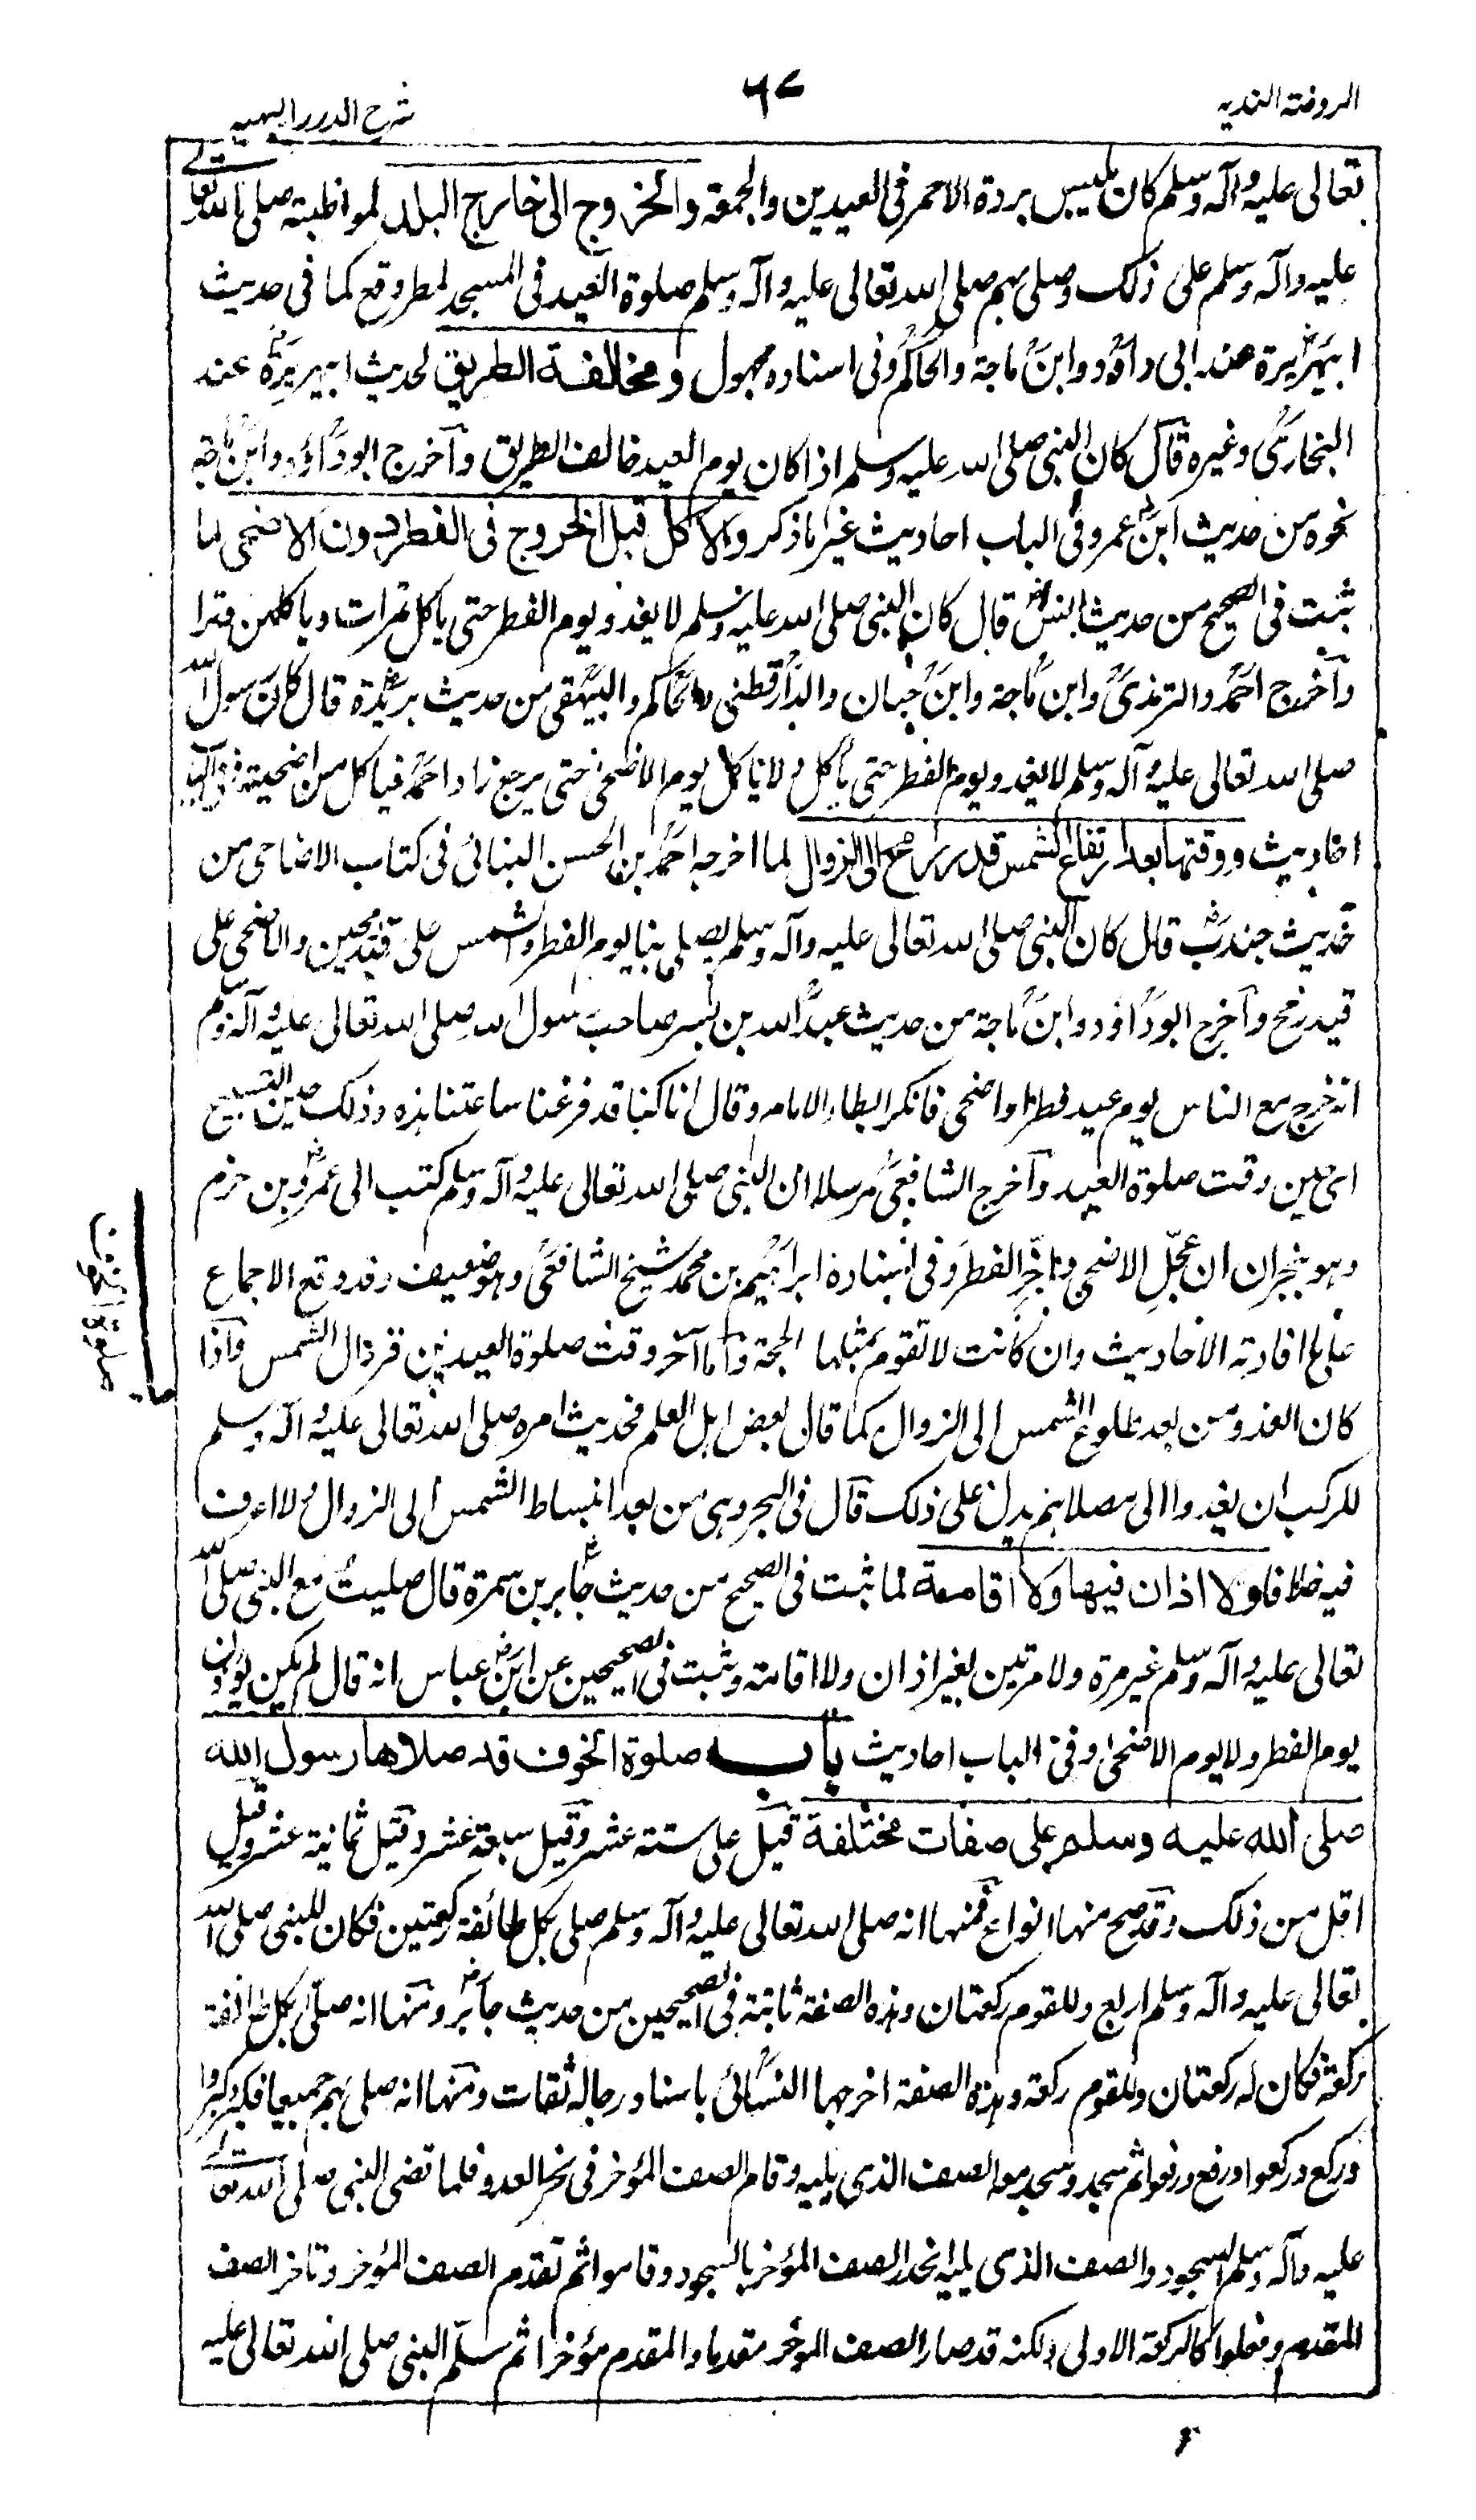 الروضة الندیه
٦٧
شرح الدرر البهیه
تعالى عليه وآله وسلم كان يلبس بردة الاحمر فى العيدين والجمعة والخروج الى خارج البلد لمواظبته صلى الله تعالى
عليه وآله وسلم على ذلك وصلى بهم صلى الله تعالى عليه وآله وسلم صلوة العيد فى المسجد لمطر وقع كما فى حديث
ابيهريرة عند ابى داؤد وابن ماجة والحاكم وفى اسناده مجهول ومخالفة الطريق لحديث ابيهريرة عند
البخارى وغيره قال كان النبى صلى الله عليه وسلم اذا كان يوم العيد خالف الطريق وآخرج ابوداؤد وابن ماجة
نحوه من حديث ابن عمر وفى الباب احاديث غير ما ذكر والاكل قبل الخروج فى الفطر دون الاضحى لما
ثبت فى الصحيح من حديث انس قال كان النبى صلى الله عليه وسلم لا يغدو يوم الفطر حتى ياكل تمرات وياكلهن وترا
وآخرج احمد والترمذى وابن ماجة وابن حبان والدارقطنى والحاكم والبيهقى من حديث بريدة قال كان رسول الله
صلى الله تعالى عليه وآله وسلم لا يغدو يوم الفطر حتى ياكل ولا ياكل يوم الاضحى حتى يرجع زاد احمد فياكل من اضحيته وفى الباب
احاديث ووقتها بعد ارتفاع الشمس قدر رمح الى الزوال لما اخرجه احمد بن الحسن البنائى فى كتاب الاضاحى من
حديث جندب قال كان النبى صلى الله تعالى عليه وآله وسلم يصلى بنا يوم الفطر والشمس على قيد رمحين والاضحى على
قيد رمح وآخرج ابوداؤد وابن ماجة من حديث عبد الله بن بسر صاحب رسول الله صلى الله تعالى عليه وآله وسلم
انه خرج مع الناس يوم عيد فطر او اضحى فانكر ابطاء الامام وقال انا كنا قد فرغنا ساعتنا هذه وذلك حين التسبيح
اى حين وقت صلوة العيد وآخرج الشافعى مرسلا ان النبى صلى الله تعالى عليه وآله وسلم كتب الى عمرو بن حزم
وهو بنجران ان عجّل الاضحى واخّر الفطر وفى اسناده ابراهيم بن محمد شيخ الشافعى وهو ضعيف وقد وقع الاجماع
على ما افادته الاحاديث وان كانت لا تقوم بمثلها الحجة واما آخر وقت صلوة العيدين فزوال الشمس واذا
كان الغدو من بعد طلوع الشمس الى الزوال كما قال بعض اهل العلم فحديث امره صلى الله تعالى عليه وآله وسلم
للركب ان يغدوا الى مصلاهم يدل على ذلك قال فى البحر وهى من بعد انبساط الشمس الى الزوال ولا اعرف
فيه خلافا ولا اذان فيها ولا اقامة لما ثبت فى الصحيح من حديث جابر بن سمرة قال صليت مع النبى صلى الله
تعالى عليه وآله وسلم غير مرة ولا مرتين بغير اذان ولا اقامة وثبت فى الصحيحين عن ابن عباس انه قال لم يكن يؤذن
يوم الفطر ولا يوم الاضحى وفى الباب احاديث باب صلوة الخوف قد صلاها رسول الله
صلى الله عليه وسلم على صفات مختلفة قيل على ستة عشر وقيل سبعة عشر وقيل ثمانية عشر وقيل
اقل من ذلك وقد صح منها انواع فمنها انه صلى الله تعالى عليه وآله وسلم صلى بكل طائفة ركعتين فكان للنبى صلى الله
تعالى عليه وآله وسلم اربع وللقوم ركعتان وهذه الصفة ثابتة فى الصحيحين من حديث جابر ومنها انه صلى بكل طائفة
ركعة فكان له ركعتان وللقوم ركعة وهذه الصفة اخرجها النسائى باسناد رجاله ثقات ومنها انه صلى بهم جميعا فكبر وكبروا
وركع وركعوا ورفع ورفعوا ثم سجد وسجد معه الصف الذى يليه وقام الصف المؤخر فى نحر العدو فلما قضى النبى صلى الله تعالى
عليه وآله وسلم السجود والصف الذى يليه انحدر الصف المؤخر بالسجود وقاموا ثم تقدم الصف المؤخر وتاخر الصف
المقدم وفعلوا كالركعة الاولى ولكنه قد صار الصف المؤخر مقدما والمقدم مؤخرا ثم سلّم النبى صلى الله تعالى عليه
صلوة الخوف